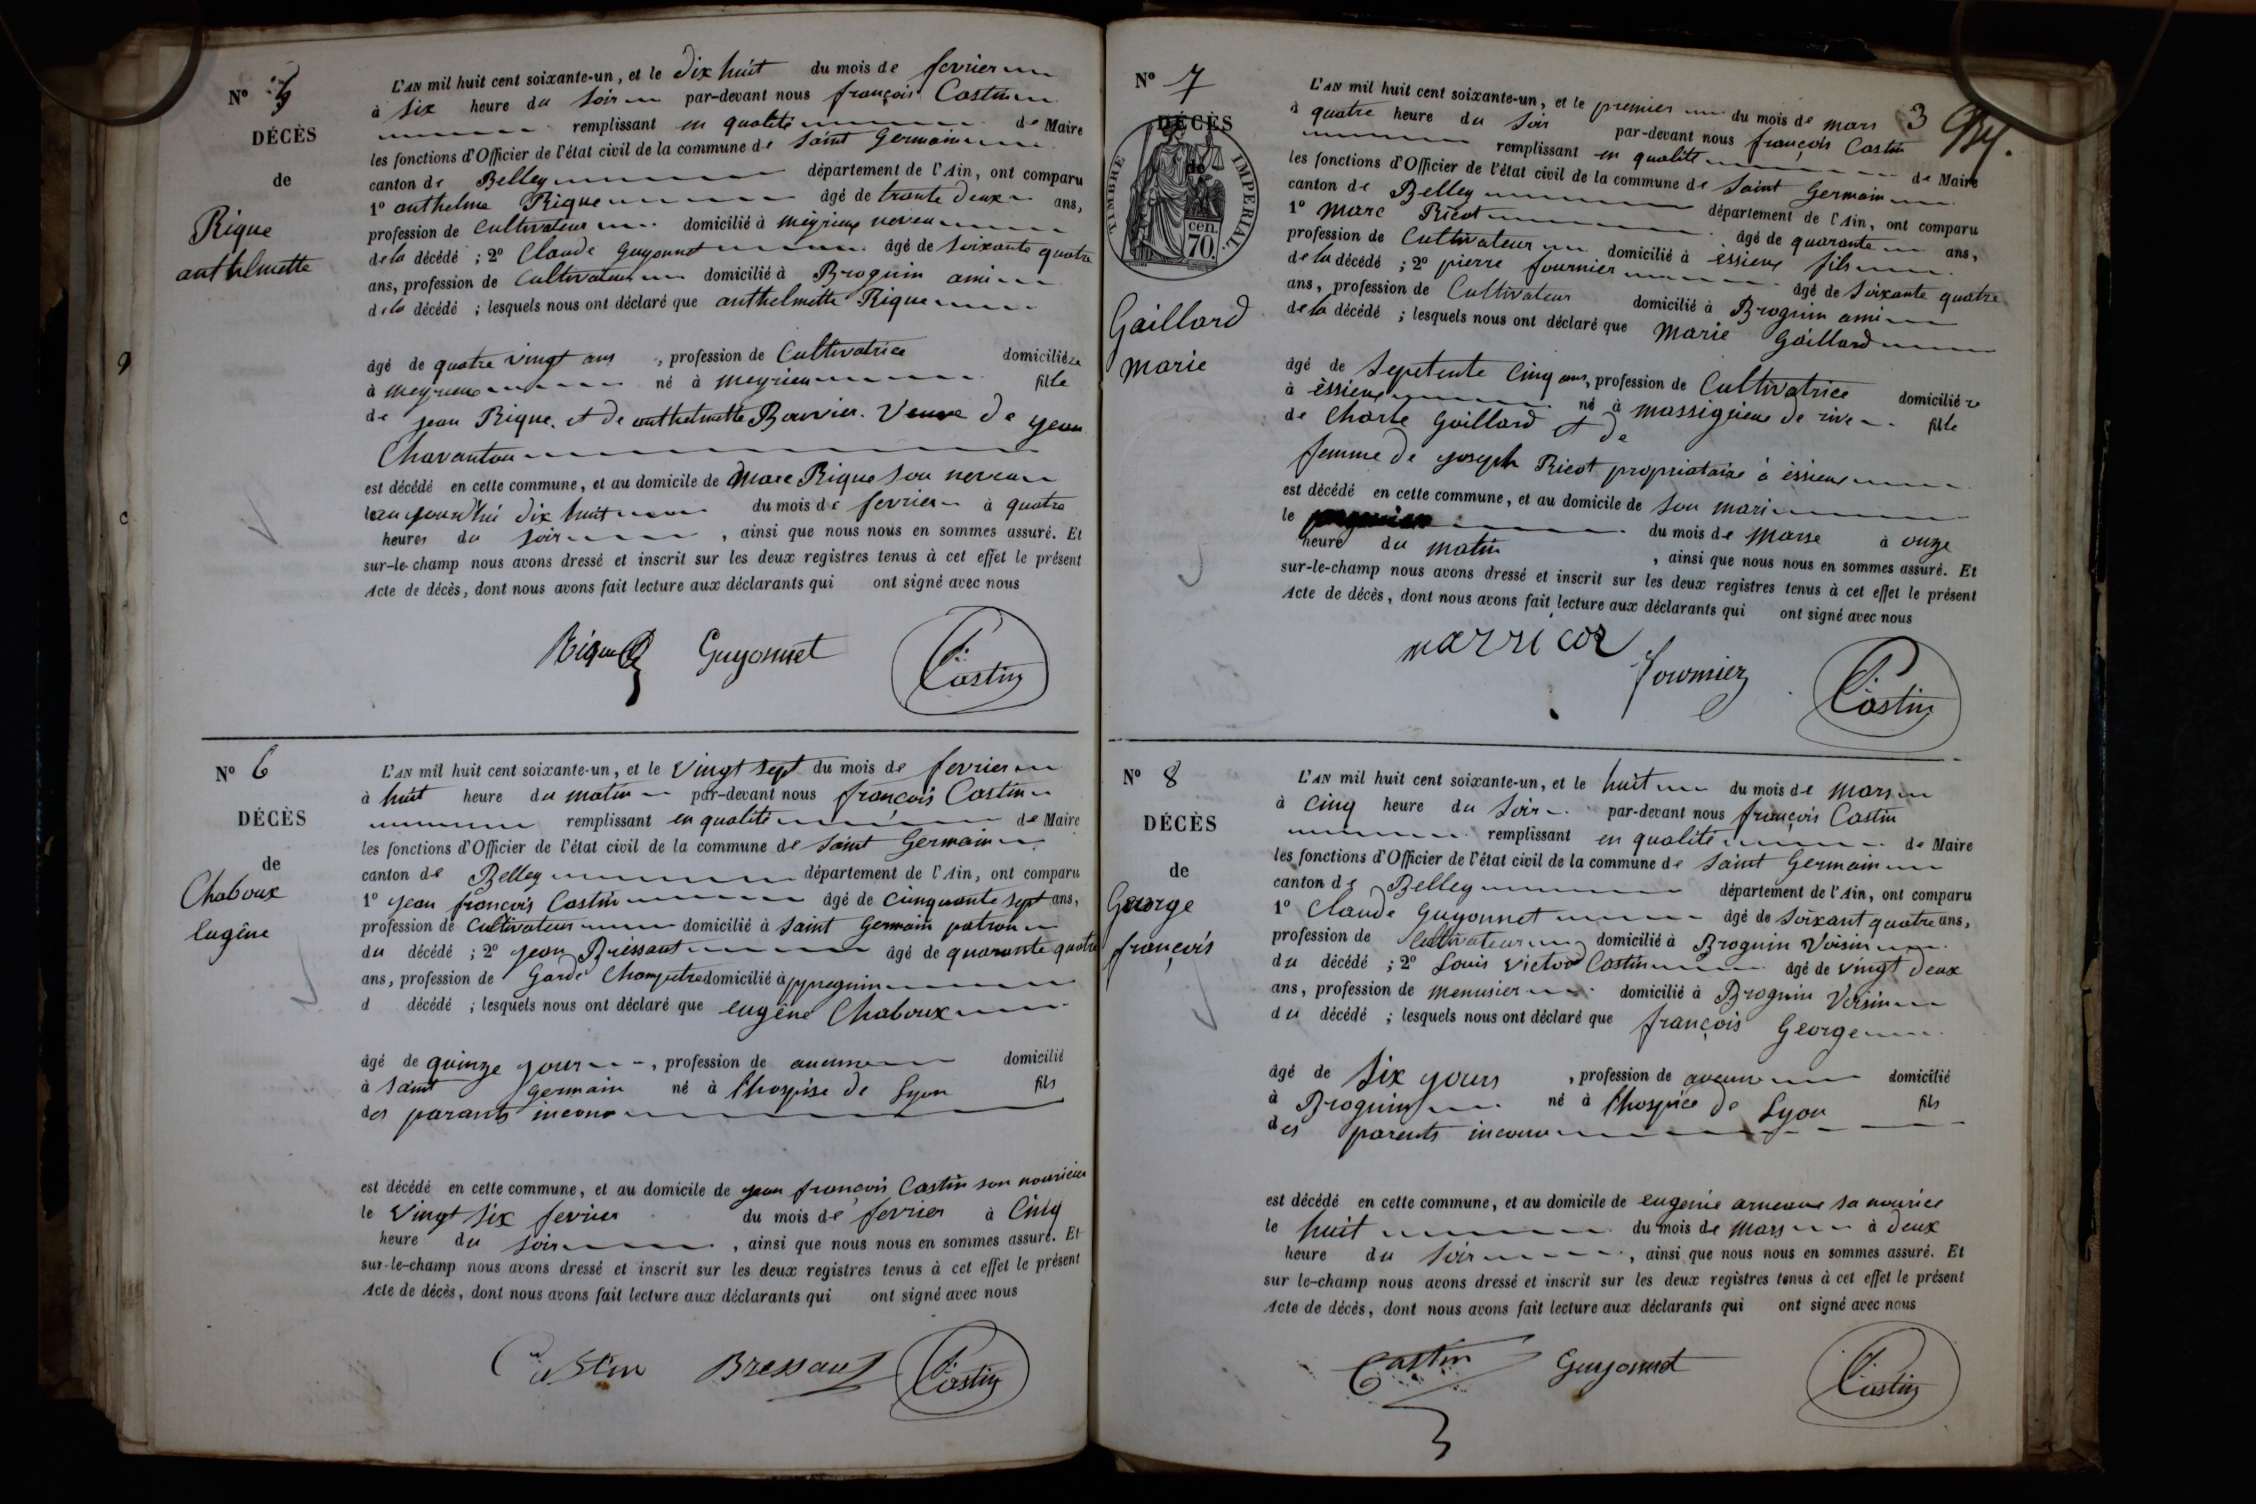 N° 5
DÉCÈS
de
Rique
anthelmette
L'AN mil huit cent soixante-un, et le dix huit du mois de fevrier
à six heure du soir par-devant nous françois Castin
remplissant en qualité de Maire
les fonctions d'Officier de l'état civil de la commune de saint Germain
canton de Belley département de l'Ain, ont comparu
1° anthelme Rique âgé de trante deux ans,
profession de cultivateur domicilié à meyrieux neveu
de la décédé ; 2° Claude Guyonnet âgé de soixante quatre
ans, profession de Cultivateur domicilié à Brognin ami
de la décédé ; lesquels nous ont déclaré que anthelmette Rique
âgé de quatre vingt ans , profession de Cultivatrice domiciliée
à meyrieux né à meyrieu fille
de jean Rique et de anthelmette Bouvier. Veuve de jean
Chavanton
est décédé en cette commune, et au domicile de Marc Rique son neveu
le aujourd'hui dix huit du mois de fevrier à quatre
heures du soir , ainsi que nous nous en sommes assuré. Et
sur-le-champ nous avons dressé et inscrit sur les deux registres tenus à cet effet le présent
Acte de décès, dont nous avons fait lecture aux déclarants qui ont signé avec nous
Rique Guyonnet Castin
N° 6
DÉCÈS
de
Chaboux
Eugène
L'AN mil huit cent soixante-un, et le vingt sept du mois de fevrier
à huit heure du matin par-devant nous françois Castin
remplissant en qualité de Maire
les fonctions d'Officier de l'état civil de la commune de saint Germain
canton de Belley département de l'Ain, ont comparu
1° jean françois Castin âgé de cinquante sept ans,
profession de cultivateur domicilié à saint Germain patron
du décédé ; 2° jean Bressaut âgé de quarante quatre
ans, profession de Garde Champetre domicilié à
d décédé ; lesquels nous ont déclaré que eugène Chaboux
âgé de quinze jour , profession de aucune domicilié
à saint germain né à l'hospise de Lyon fils
des parants inconu
est décédé en cette commune, et au domicile de jean françois Castin son nouricier
le vingt six fevrier du mois de fevrier à Cinq
heure du soir , ainsi que nous nous en sommes assuré. Et
sur-le-champ nous avons dressé et inscrit sur les deux registres tenus à cet effet le présent
Acte de décès, dont nous avons fait lecture aux déclarants qui ont signé avec nous
Castin Bressaut Castin
3
N° 7
DÉCÈS
de
TIMBRE IMPÉRIAL
70 cen.
Gaillard
Marie
L'AN mil huit cent soixante-un, et le premier du mois de mars
à quatre heure du soir par-devant nous françois Castin
remplissant en qualité de Maire
les fonctions d'Officier de l'état civil de la commune de Saint Germain
canton de Belley département de l'Ain, ont comparu
1° Marc Ricot âgé de quarante ans,
profession de Cultivateur domicilié à essieux fils
de la décédé ; 2° pierre fournier âgé de soixante quatre
ans, profession de Cultivateur domicilié à Brognin ami
de la décédé ; lesquels nous ont déclaré que Marie Gaillard
âgé de sepetente cinq ans, profession de Cultivatrice domiciliée
à èssieux né à massignieux de rive fille
de Charle Gaillard et de
femme de joseph Ricot propriataire à èssieux
est décédé en cette commune, et au domicile de son mari
le du mois de marse à onze
heure du matin , ainsi que nous nous en sommes assuré. Et
sur-le-champ nous avons dressé et inscrit sur les deux registres tenus à cet effet le présent
Acte de décès, dont nous avons fait lecture aux déclarants qui ont signé avec nous
fournier Castin
N° 8
DÉCÈS
de
George
françois
L'AN mil huit cent soixante-un, et le huit du mois de mars
à cinq heure du soir par-devant nous françois Castin
remplissant en qualité de Maire
les fonctions d'Officier de l'état civil de la commune de saint Germain
canton de Belley département de l'Ain, ont comparu
1° Claude Guyonnet âgé de soixant quatre ans,
profession de Cultivateur domicilié à Brognin Voisin
du décédé ; 2° Louis victor Castin âgé de vingt deux
ans, profession de menusier domicilié à Brognin Voisin
du décédé ; lesquels nous ont déclaré que françois George
âgé de six jours , profession de aucune domicilié
à Brognin né à l'hospice de Lyon fils
des parents inconu
est décédé en cette commune, et au domicile de eugenie sa nourice
le huit du mois de mars à deux
heure du soir , ainsi que nous nous en sommes assuré. Et
sur le-champ nous avons dressé et inscrit sur les deux registres tenus à cet effet le présent
Acte de décès, dont nous avons fait lecture aux déclarants qui ont signé avec nous
Castin Guyonnet Castin